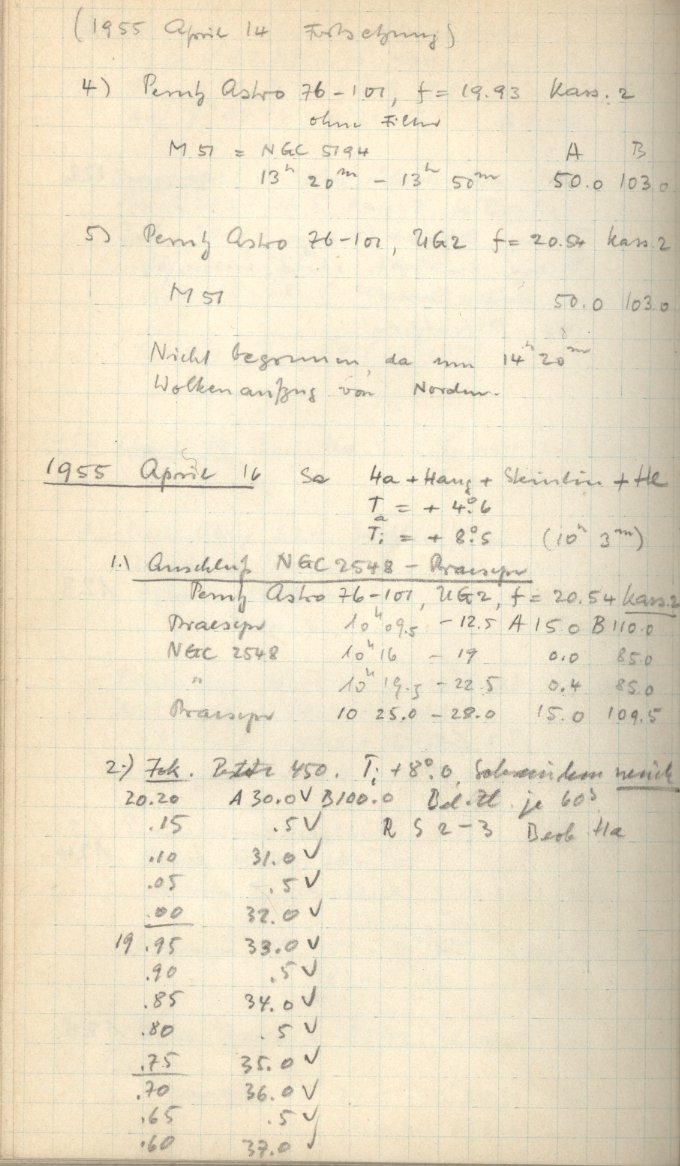 (1955 April 14 Fortsetzung)
4) Perutz Astro 76-101, f = 19.93 Kass. 2
ohne Filter
M 51 = NGC 5194 A B
13h 20m - 13h 50m 50.0 103.0
5) Perutz Astro 76-101, UG2 f = 20.54 Kass. 2
M 51 50.0 103.0
Nicht begonnen, da um 14h 20m
Wolkenaufzug von Norden.
1955 April 16 Sa Ha + Haug +
Ta = + 4°.6
Ti = + 8°.5 (10h 3m)
1.) Anschluß NGC 2548 - Praesepe
Perutz Astro 76-101, UG2, f = 20.54 Kass. 2
Praesepe 10h 09.5 - 12.5 A 15.0 B 110.0
NGC 2548 10h 16 - 19 0.0 85.0
" 10h 19.5 - 22.5 0.4 85.0
Praesepe 10 25.0 - 28.0 15.0 109.5
2.) Fok. 450. Ti +8°.0,
20.20 A 30.0 V B 100.0 Bel. Zt. je 60s
.15 .5 V R S 2-3 Beob Ha
.10 31.0 V
.05 .5 V
.00 32.0 V
19.95 33.0 V
.90 .5 V
.85 34.0 V
.80 .5 V
.75 35.0 V
.70 36.0 V
.65 .5 V
.60 37.0 V